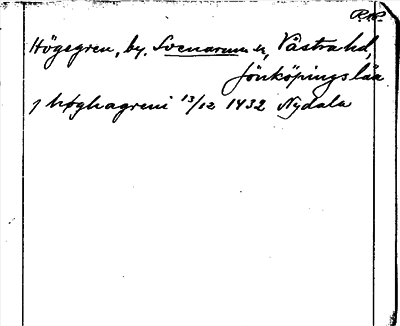 Högsgren, by. Svenarum sn, Västra hd,
Jönköpings län
j høghagreni 13/12 1432 Nydala